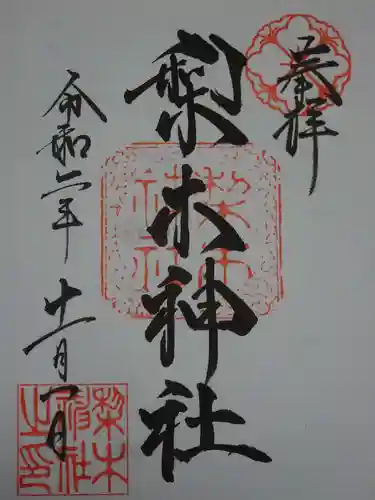 奉拝
梨木神社
令和二年
十一月一日
梨木神社
梨木神社之印